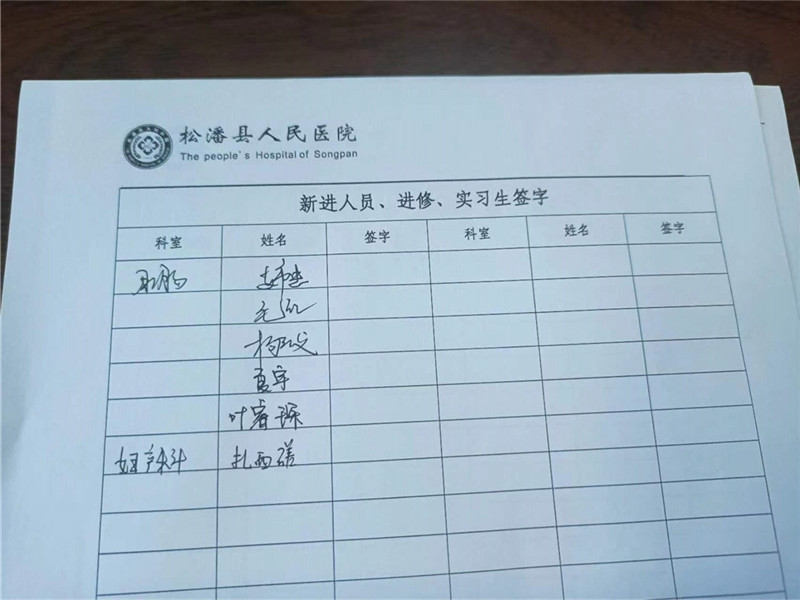 松潘县人民医院
The people's Hospital of Songpan
新进人员、进修、实习生签字
科室 姓名 签字 科室 姓名 签字
夏宇
叶睿琛
妇产科 扎西磋